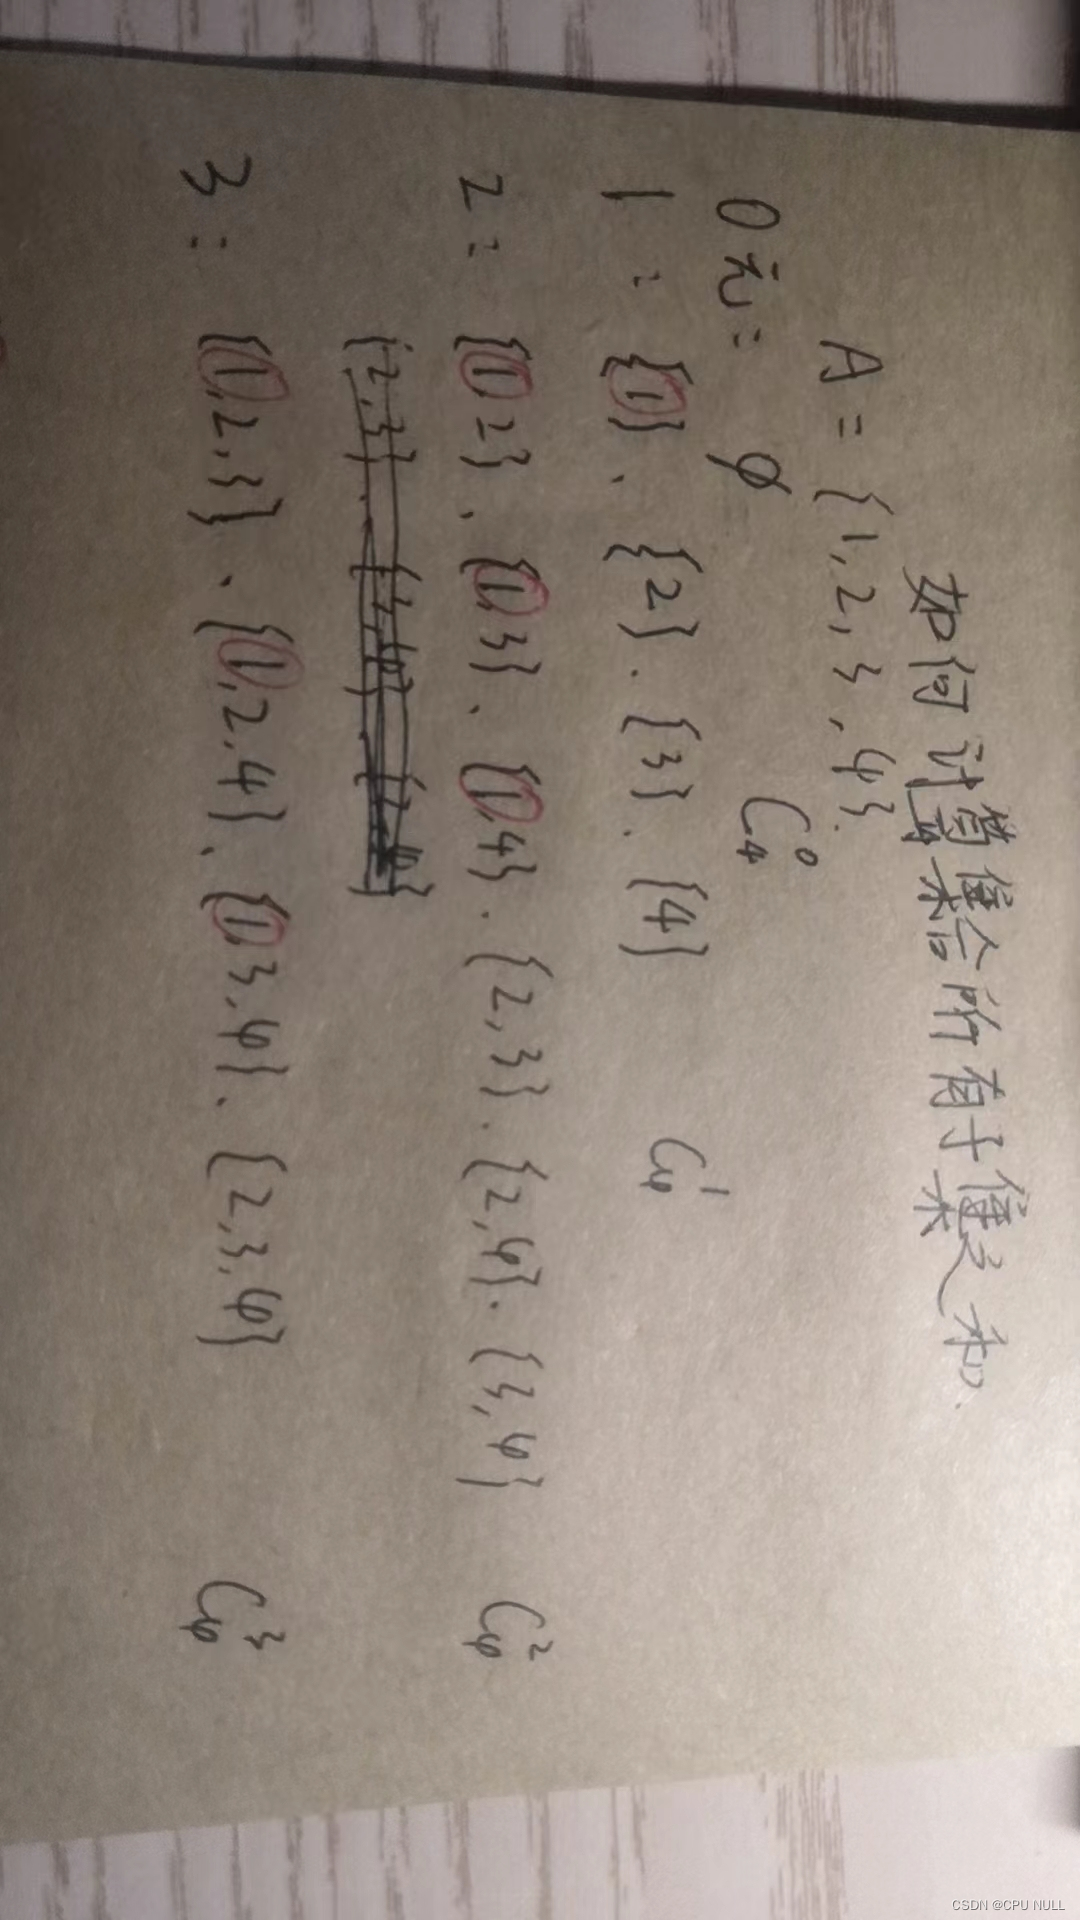 如何计算集合所有子集之和
A = {1,2,3,4}.
0元: ϕ C₄⁰
1: {1}、{2}.{3}.{4} C₄¹
2: {1,2}、{1,3}、{1,4}.{2,3}.{2,4}.{3,4} C₄²
{2,3}.
3: {1,2,3}、{1,2,4}、{1,3,4}、{2,3,4} C₄³
CSDN @CPU NULL